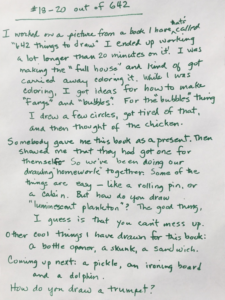 #18-20 out of 642
I worked on a picture from a book I have, called
"642 things to draw" I ended up working
a lot longer than 20 minutes on it. I was
making the "full house" and kind of got
carried away coloring it. While I was
coloring, I got ideas for how to make
"Fangs" and "bubbles". For the "bubbles" thing
I drew a few circles, got tired of that,
and then thought of the chicken.
Somebody gave me this book as a present. Then
showed me that they had got one for
themself. So we've been doing our
drawing homework together. Some of the
things are easy - like a rolling pin, or
a cabin. But how do you draw
"luminescent plankton"? The good thing,
I guess is that you can't mess up.
Other cool things I have drawn for this book:
A bottle opener, a skunk, a sandwich.
Coming up next: a pickle, an ironing board
and a dolphin.
How do you draw a trumpet?